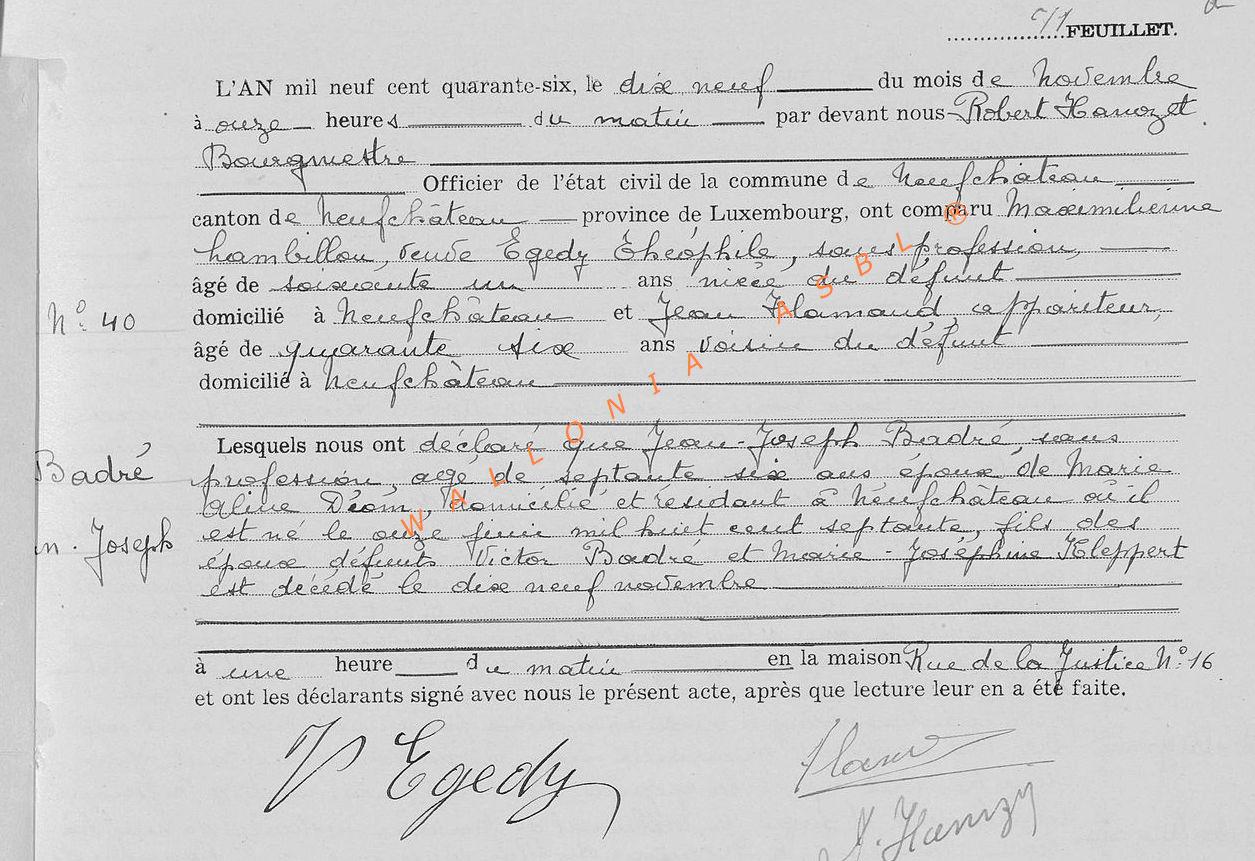 71 FEUILLET.
L'AN mil neuf cent quarante-six, le dix neuf du mois de Novembre
à onze heures du matin par devant nous Robert Hanozet
Bourgmestre
Officier de l'état civil de la commune de Neufchâteau
canton de Neufchâteau province de Luxembourg, ont comparu Maximilienne
hambillon, veuve Egedy Théophile, sans profession,
âgé de soixante un ans nièce du défunt
N° 40
domicilié à Neufchâteau et Jean Flamand, appariteur,
âgé de quarante six ans voisin du défunt
domicilié à Neufchâteau
Lesquels nous ont déclaré que Jean-Joseph Badré, sans
Badré
profession, agé de septante six ans époux de Marie
Aline Déom, domicilié et résidant à Neufchâteau où il
n. Joseph
est né le onze juin mil huit cent septante, fils des
époux défunts Victor Badré et Marie-Joséphine Kleppert
est décédé le dix neuf novembre
à une heure du matin en la maison Rue de la Justice N° 16
et ont les déclarants signé avec nous le présent acte, après que lecture leur en a été faite.
V Egedy
WALLONIA ASBL ®